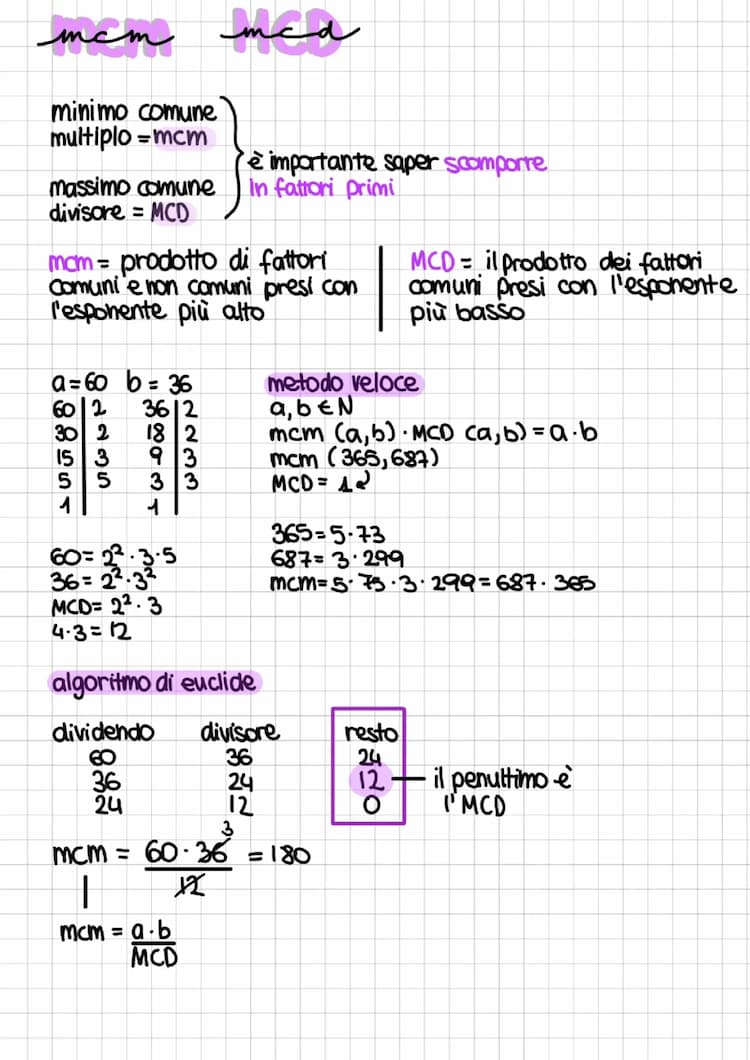 mcm MCD
minimo comune
multiplo = mcm
massimo comune
divisore = MCD
è importante saper scomporre
in fattori primi
mcm = prodotto di fattori
comuni e non comuni presi con
l'esponente più alto
MCD = il prodotto dei fattori
comuni presi con l'esponente
più basso
a=60 b=36
60|2 36|2
30|2 18|2
15|3 9|3
5|5 3|3
1| 1|
60=2²·3·5
36=2²·3²
MCD=2²·3
4·3=12
metodo veloce
a,b∈N
mcm (a,b)·MCD (a,b)=a·b
mcm (365,687)
MCD= 1
365=5·73
687=3·299
mcm=5·75·3·299=687·365
algoritmo di euclide
dividendo divisore resto
60 36 24
36 24 12
24 12 0
il penultimo è
l'MCD
3
mcm = 60·36 = 180
12
mcm = a·b
MCD